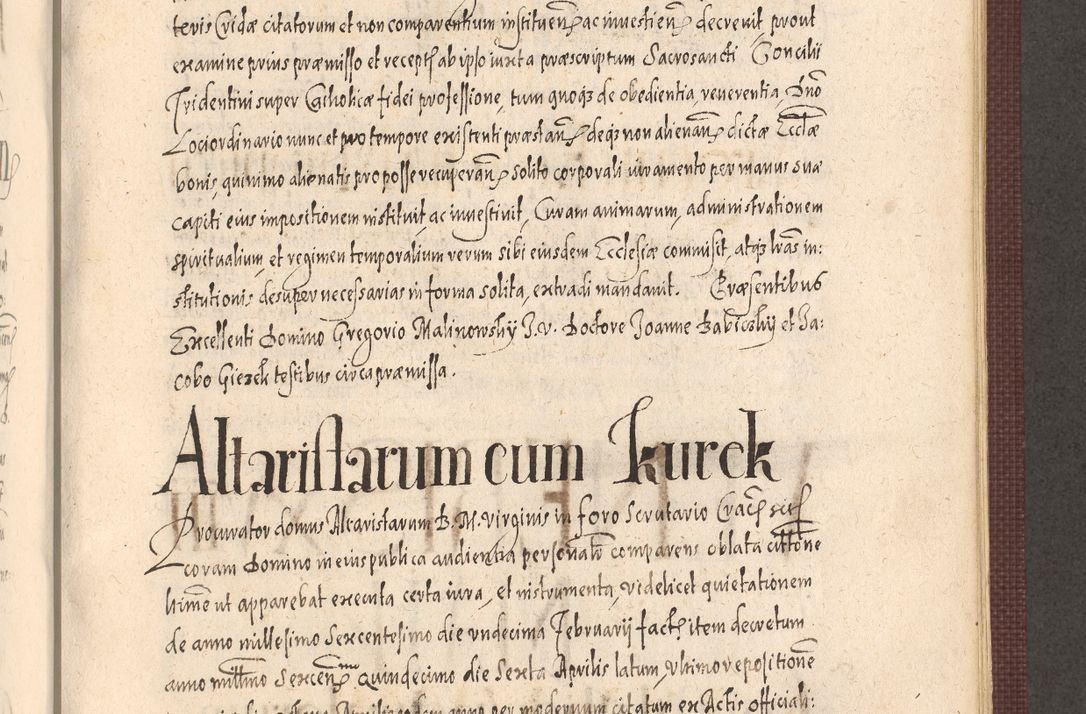 teris Cridæ citatorum et non comparentium instituen̄ ac investien̄ decrevit, prout
examine prius præmisso et recepta ab ipso iuxta præscriptum Sacrosancti Concilii
Tridentini super Catholicæ fidei professione, tum quoq3 de obedientia, reverentia, Dno
Lociordinario nunc et pro tempore existenti præstan̄ deq3 non alienan̄ dictæ Ecctæ
bonis, quinimo alienatis pro posse recuperan̄ solito corporali iuramento per manus suæ
capiti eius impositionem instituit, ac investivit, Curam animarum, administrationem
spiritualium, et regimen temporalium rerum sibi eiusdem Ecclesiæ commisit, atq3 lras in:
stitutionis desuper necessarias in forma solita, extradi mandavit. Præsentibus
Excellenti Domino Gregorio Malinowskij I.V. Doctore Joanne Babiczkij et Ja:
cobo Giezek testibus circa præmissa.
Altaristarum cum Kurek
Procurator domus Altaristarum B. M. Virginis in foro Scrutario Crac̄
coram Domino in eius publica audientia personalr comparens oblata citt̄one
hinc ut apparebat executa certa iura, et instrumenta, videlicet quietationem
de anno millesimo Sexcentesimo die undecima Februarij fact̄ item decretum
anno millīmo Sexcen̄mo Quindecimo die Sexta Aprilis latum, ultimo repositionē
anno per modernum citatum ex Actis officiali: